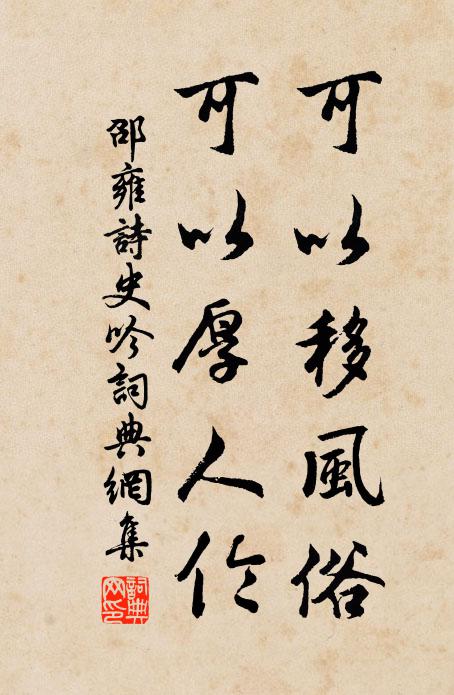 可以移風俗
可以厚人伦
邵雍詩史吟詞典網集
詞典網印